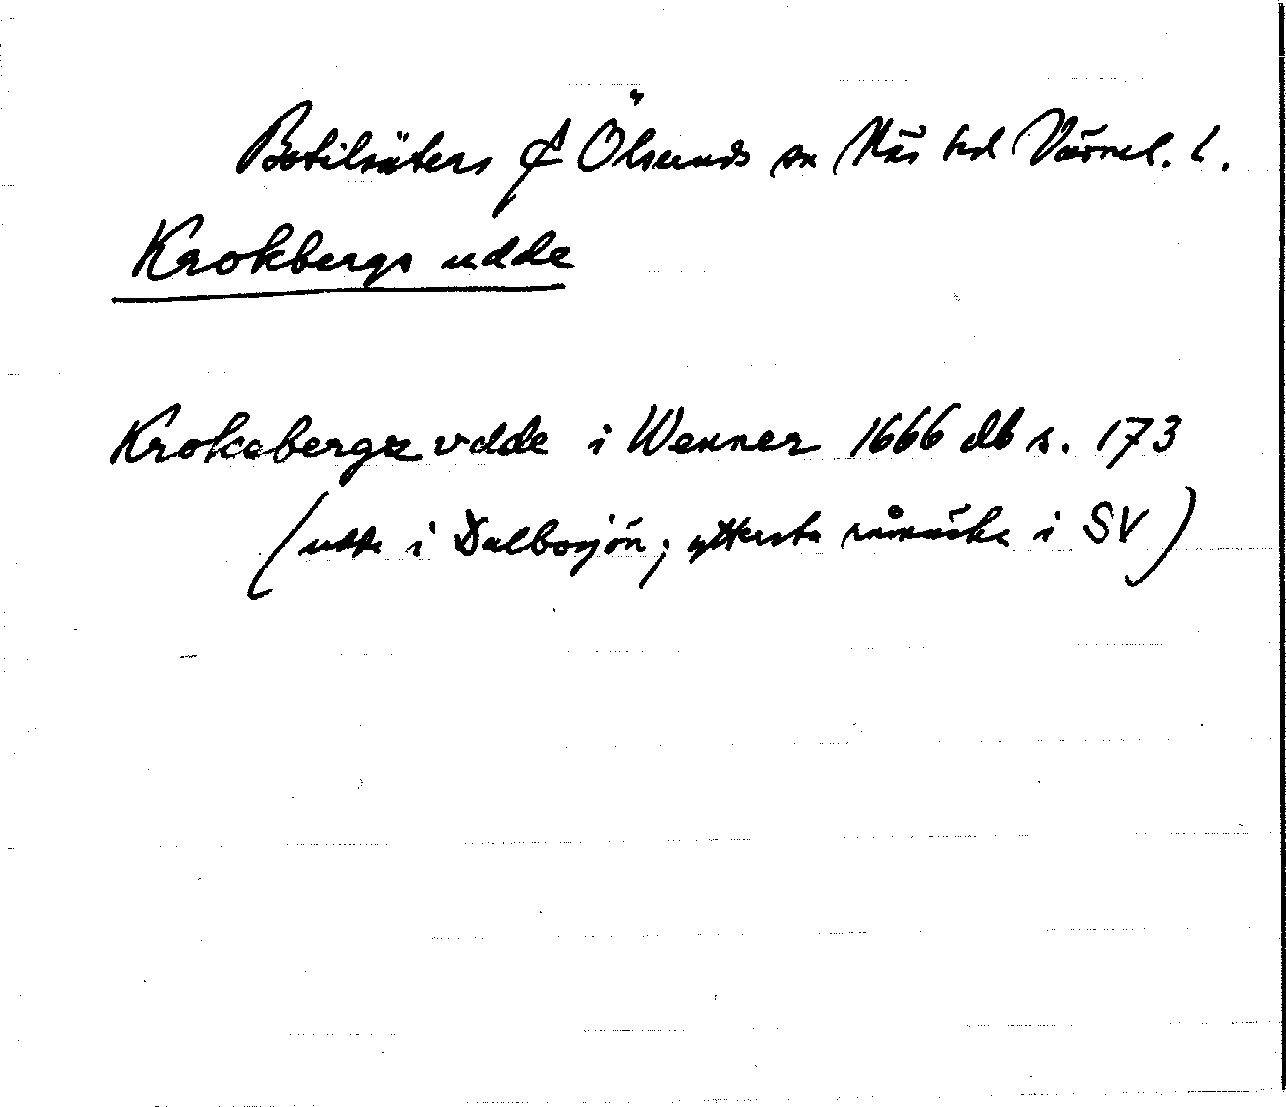 Botilsäters & Ölseruds sn Näs hd Värml. l.
Krokbergs udde
Krokeberga vdde i Wenner 1666 db s. 173
(udde i Dalbosjön; yttersta råmärke i SV)